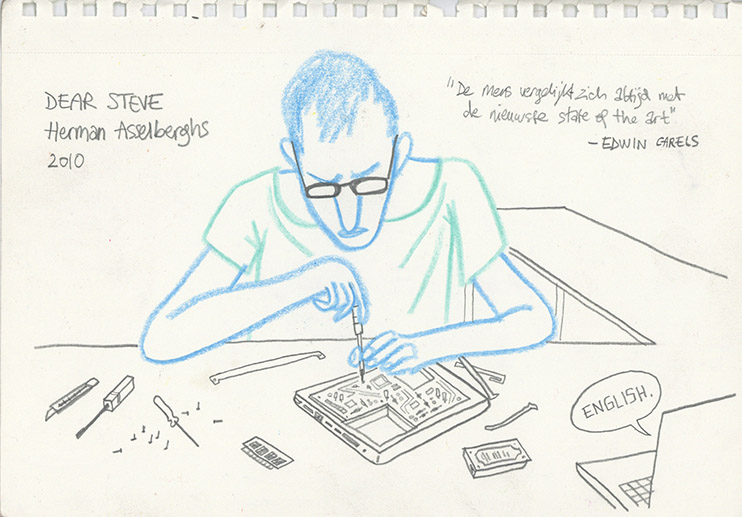 DEAR STEVE
Herman Asselberghs
2010
"De mens vergelijkt zich altijd met
de nieuwste state of the art"
- EDWIN CARELS
ENGLISH.